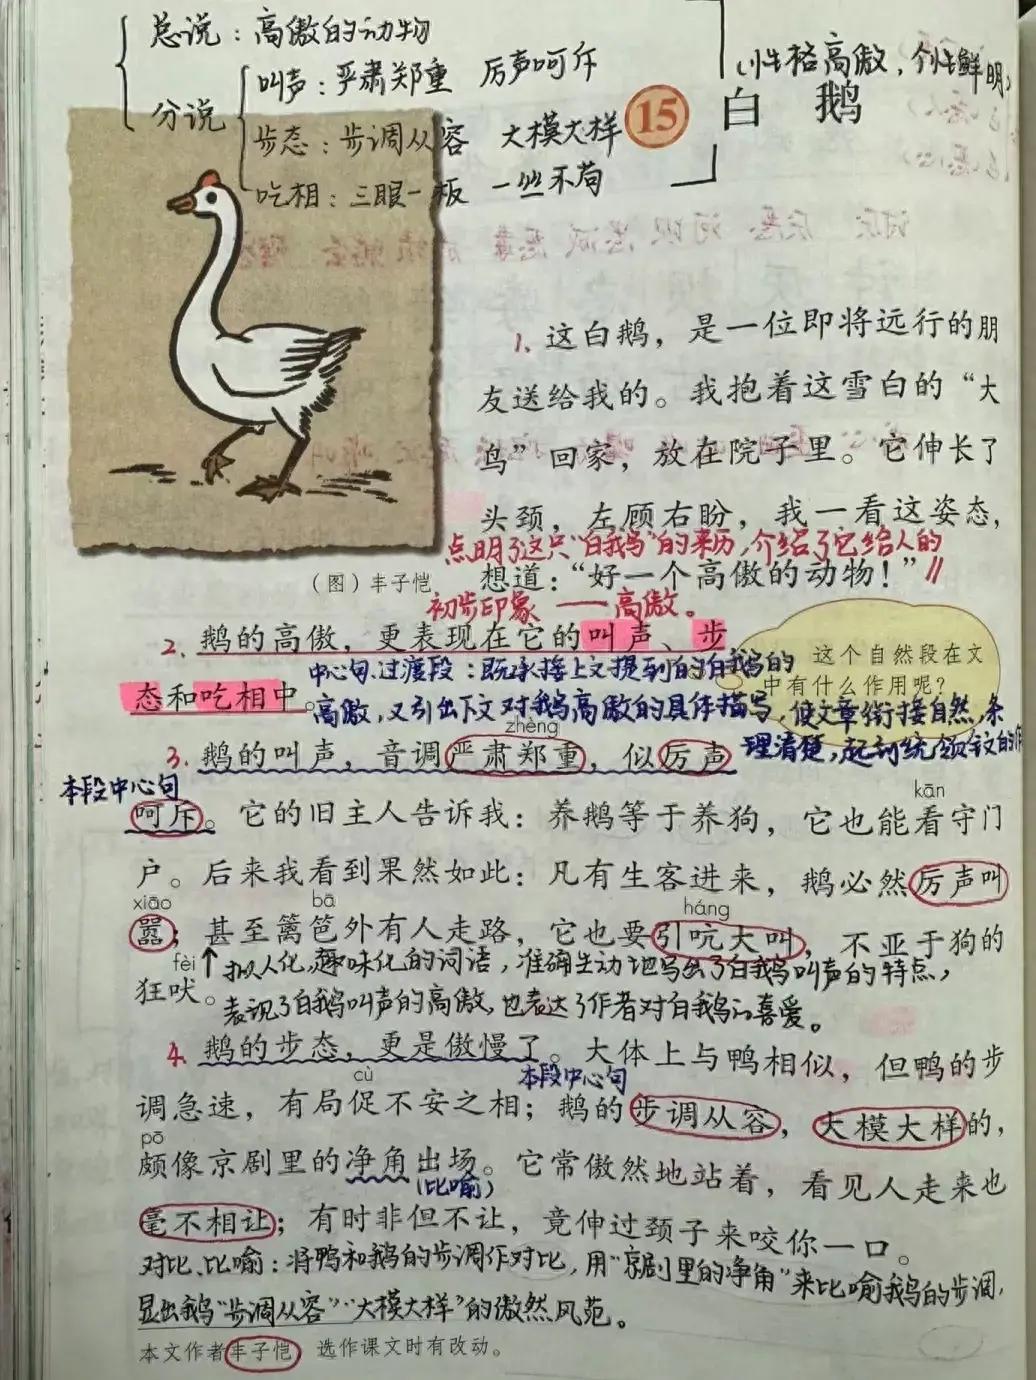 总说：高傲的动物
分说
叫声：严肃郑重 厉声呵斥
步态：步调从容 大模大样
吃相：三眼一板 一丝不苟
(性格高傲，个性鲜明)
15 白 鹅
1. 这白鹅，是一位即将远行的朋
友送给我的。我抱着这雪白的“大
鸟”回家，放在院子里。它伸长了
头颈，左顾右盼，我一看这姿态，
点明了这只“白鹅”的来历，介绍了它给人的
想道：“好一个高傲的动物！”
（图）丰子恺
初步印象——高傲。
2. 鹅的高傲，更表现在它的叫声、步
态和吃相中。
这个自然段在文
中有什么作用呢？
中心句、过渡段：既承接上文提到的白鹅的
高傲，又引出下文对鹅高傲的具体描写，使文章衔接自然，条
理清楚，起到统领全文的作
zhèng
3. 鹅的叫声，音调严肃郑重，似厉声
本段中心句
kān
呵斥。它的旧主人告诉我：养鹅等于养狗，它也能看守门
户。后来我看到果然如此：凡有生客进来，鹅必然厉声叫
xiāo bā háng
嚣；甚至篱笆外有人走路，它也要引吭大叫，不亚于狗的
fèi
狂吠。
拟人化、趣味化的词语，准确生动地写出了白鹅叫声的特点，
表现了白鹅叫声的高傲，也表达了作者对白鹅的喜爱。
4. 鹅的步态，更是傲慢了。大体上与鸭相似，但鸭的步
本段中心句
cù
调急速，有局促不安之相；鹅的步调从容，大模大样的，
pō
颇像京剧里的净角出场。它常傲然地站着，看见人走来也
(比喻)
毫不相让；有时非但不让，竟伸过颈子来咬你一口。
对比、比喻：将鸭和鹅的步调作对比，用“京剧里的净角”来比喻鹅的步调，
显出鹅“步调从容”“大模大样”的傲然风范。
本文作者丰子恺 选作课文时有改动。